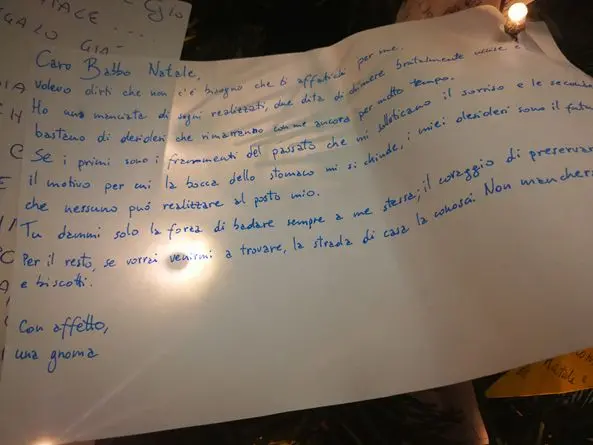 IACE ... Egio
GALO
GIA-
Caro Babbo Natale,
volevo dirti che non c'è bisogno che ti affatichi per me.
Ho una manciata di sogni realizzati, due dita di chimere brutalmente uccise e
bastano di desideri che rimarranno con me ancora per molto tempo.
Se i primi sono i frammenti del passato che mi solleticano il sorriso e le seconde
il motivo per cui la bocca dello stomaco mi si chiude, i miei desideri sono il futu
che nessuno può realizzare al posto mio.
Tu dammi solo la forza di badare sempre a me stessa; il coraggio di preservar
Per il resto, se vorrai venirmi a trovare, la strada di casa la conosci. Non manchera
e biscotti.
Con affetto,
una gnoma
Natale e